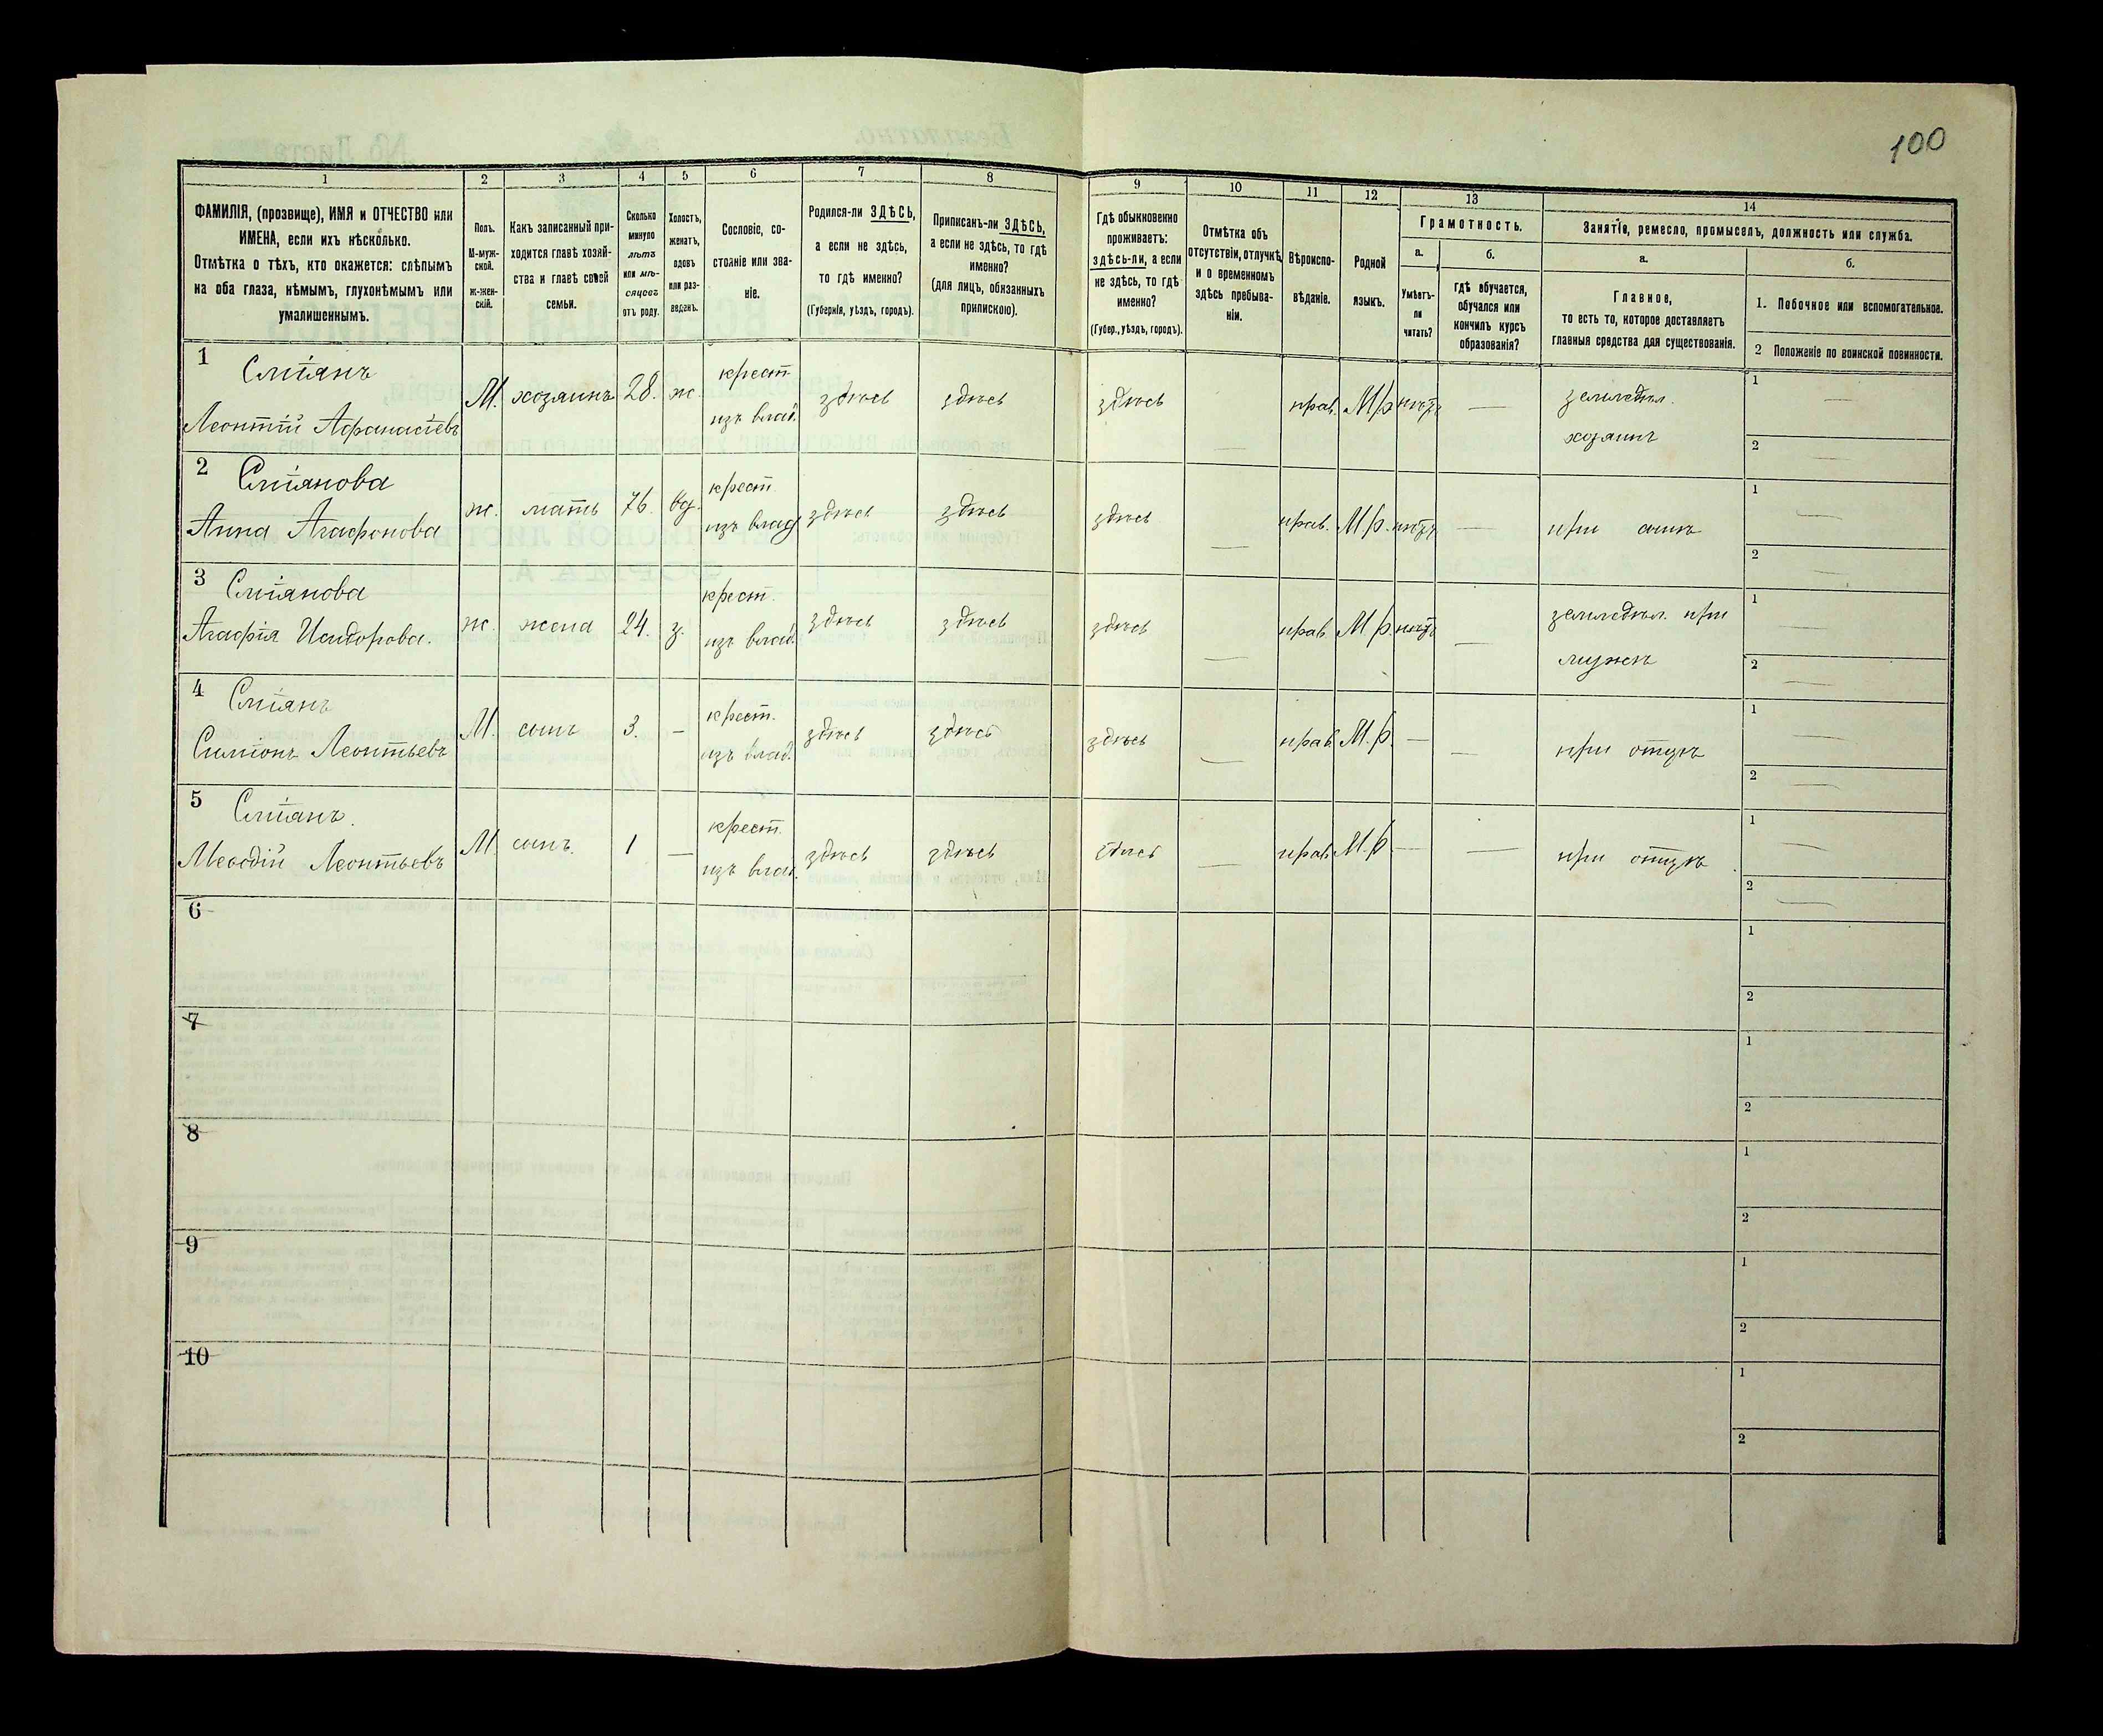 100
1 2 3 4 5 6 7 8 9 10 11 12 13 14
ФАМИЛІЯ, (прозвище), ИМЯ и ОТЧЕСТВО или
ИМЕНА, если ихъ нѣсколько.
Отмѣтка о тѣхъ, кто окажется: слѣпымъ
на оба глаза, нѣмымъ, глухонѣмымъ или
умалишеннымъ.
Полъ.
М-муж-
ской.
ж-жен-
скій.
Какъ записанный при-
ходится главѣ хозяй-
ства и главѣ своей
семьи.
Сколько
минуло
лѣтъ
или мѣ-
сяцевъ
отъ роду.
Холостъ,
женатъ,
вдовъ
или раз-
веденъ.
Сословіе, со-
стояніе или зва-
ніе.
Родился-ли ЗДѢСЬ,
а если не здѣсь,
то гдѣ именно?
(Губернія, уѣздъ, городъ).
Приписанъ-ли ЗДѢСЬ,
а если не здѣсь, то гдѣ
именно?
(для лицъ, обязанныхъ
припискою).
Гдѣ обыкновенно
проживаетъ:
здѣсь-ли, а если
не здѣсь, то гдѣ
именно?
(Губер., уѣздъ, городъ).
Отмѣтка объ
отсутствіи, отлучкѣ
и о временномъ
здѣсь пребыва-
ніи.
Вѣроиспо-
вѣданіе.
Родной
языкъ.
Грамотность.
а.
Умѣетъ-
ли
читать?
б.
гдѣ обучается,
обучался или
кончилъ курсъ
образованія?
Занятіе, ремесло, промыселъ, должность или служба.
а.
Главное,
то есть то, которое доставляетъ
главныя средства для существованія.
б.
1. Побочное или вспомогательное.
2 Положеніе по воинской повинности.
1
Леонтій Афанасіевъ
М. хозяинъ 28. ж.
крест
из влад.
здѣсь здѣсь здѣсь — прав. М.р. нѣтъ —
земледѣл.
хозяинъ
1 —
2 —
2
Анна Агафонова
ж. мать 76. вд.
крест.
изъ влад
здѣсь здѣсь здѣсь — прав. М.р. нѣтъ —
1 —
2 —
3
Агафія Исидорова.
ж. жена 24. з.
крест.
изъ влад.
здѣсь здѣсь здѣсь — прав. М.р. нѣтъ —
земледѣл. при
мужѣ
1 —
2 —
4
Симіонъ Леонтьевъ
М. сынъ 3. —
крест.
изъ влад.
здѣсь здѣсь здѣсь — прав. М.р. — —
при отцѣ
1 —
2 —
5
Меѳодій Леонтьевъ
М. сынъ. 1 —
крест.
изъ влад.
здѣсь здѣсь здѣсь — прав. М.р. — —
при отцѣ
1 —
2 —
6
1
2
7
1
2
8
1
2
9
1
2
10
1
2